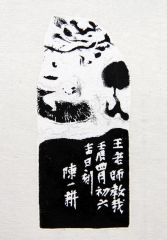 王老師教我
壬辰四月初六
吉日刻
陳一耕